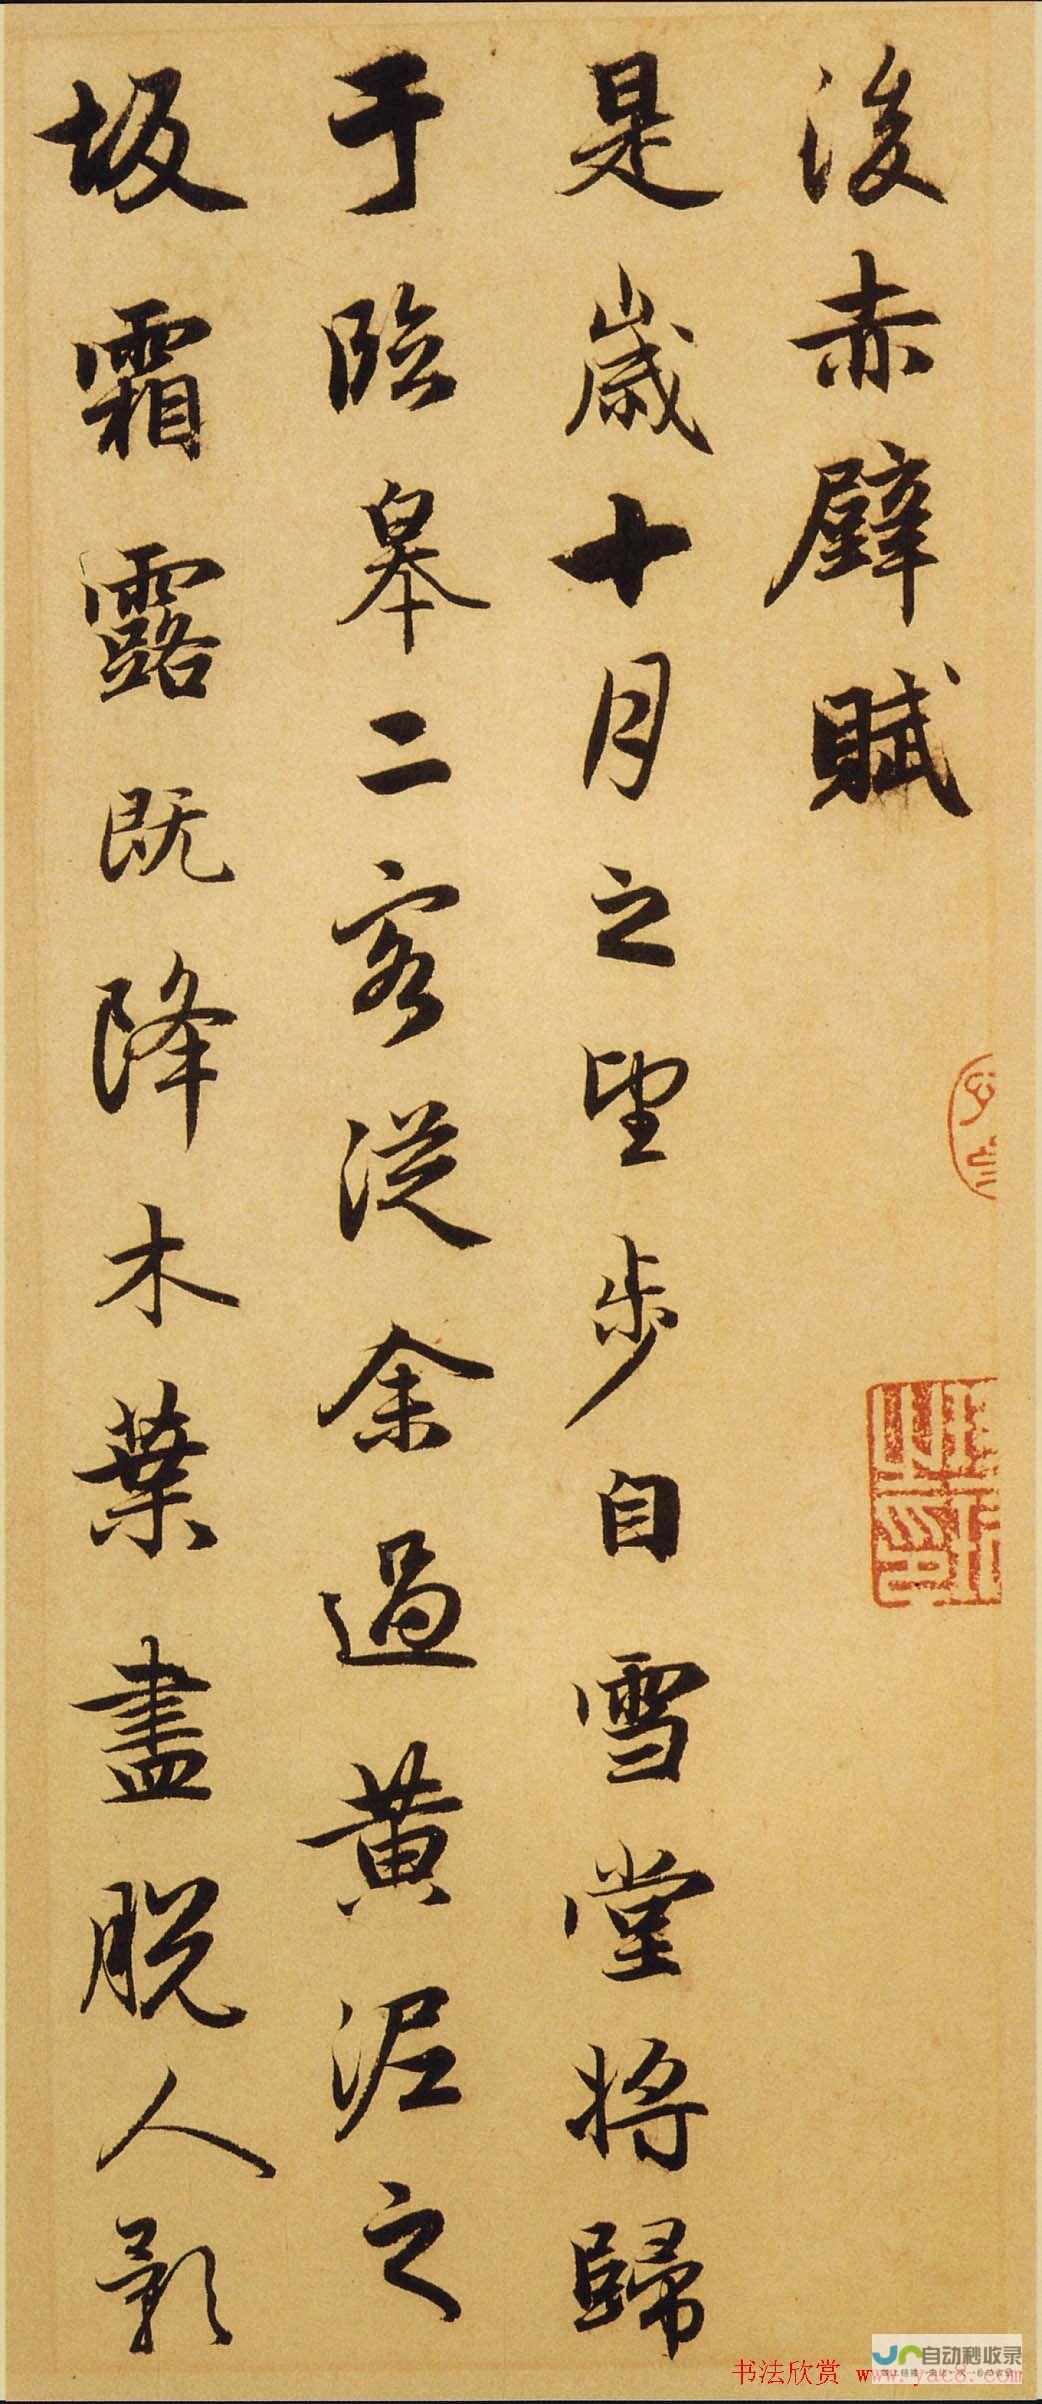 後赤壁賦
是歲十月之望步自雪堂將歸
于臨皋二客從余過黃泥之
坂霜露既降木葉盡脫人影
自动秒收录
书法欣赏 www.yac8.com